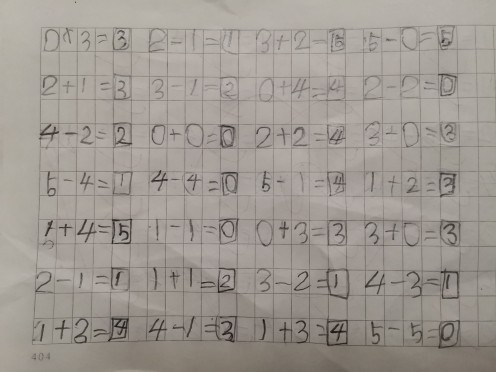 0+3=3 2-1=1 3+2=5 5-0=5
2+1=3 3-1=2 0+4=4 2-2=0
4-2=2 0+0=0 2+2=4 3-0=3
5-4=1 4-4=0 5-1=4 1+2=3
1+4=5 1-1=0 0+3=3 3+0=3
2-1=1 1+1=2 3-2=1 4-3=1
1+3=4 4-1=3 1+3=4 5-5=0
404